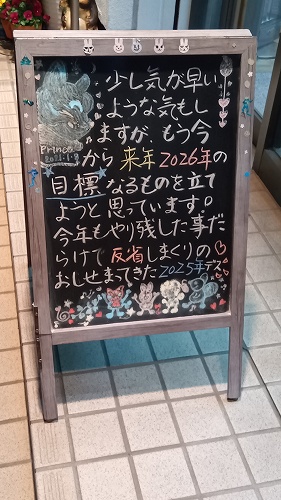 少し気が早い
ような気もし
ますが、もう今
から来年2026年の
目標なるものを立て
ようと思っています。
今年もやり残した事だ
らけで反省しまくりの
おしせまてきた2025年デス
Prince